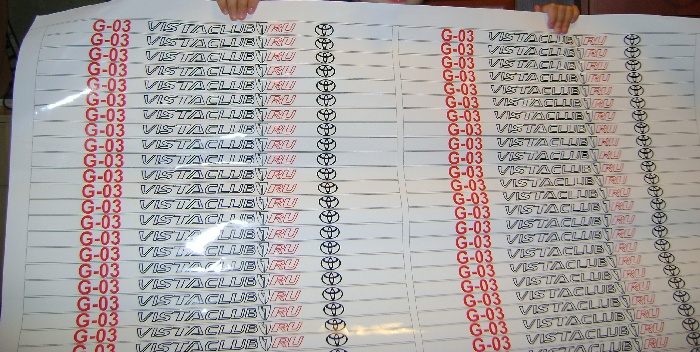 G-03 VISTACLUB.RU
G-03 VISTACLUB.RU
G-03 VISTACLUB.RU
G-03 VISTACLUB.RU
G-03 VISTACLUB.RU
G-03 VISTACLUB.RU
G-03 VISTACLUB.RU
G-03 VISTACLUB.RU
G-03 VISTACLUB.RU
G-03 VISTACLUB.RU
G-03 VISTACLUB.RU
G-03 VISTACLUB.RU
G-03 VISTACLUB.RU
G-03 VISTACLUB.RU
G-03 VISTACLUB.RU
G-03 VISTACLUB.RU
G-03 VISTACLUB.RU
G-03 VISTACLUB.RU
G-03 VISTACLUB.RU
G-03 VISTACLUB.RU
G-03 VISTACLUB.RU
G-03 VISTACLUB.RU
G-03 VISTACLUB.RU
G-03 VISTACLUB.RU
G-03 VISTACLUB.RU
G-03 VISTACLUB.RU
G-03 VISTACLUB.RU
G-03 VISTACLUB.RU
G-03 VISTACLUB.RU
G-03 VISTACLUB.RU
G-03 VISTACLUB.RU
G-03 VISTACLUB.RU
G-03 VISTACLUB.RU
G-03 VISTACLUB.RU
G-03 VISTACLUB.RU
G-03 VISTACLUB.RU
G-03 VISTACLUB.RU
G-03 VISTACLUB.RU
G-03 VISTACLUB.RU
G-03 VISTACLUB.RU
G-03 VISTACLUB.RU
G-03 VISTACLUB.RU
G-03 VISTACLUB.RU
G-03 VISTACLUB.RU
G-03 VISTACLUB.RU